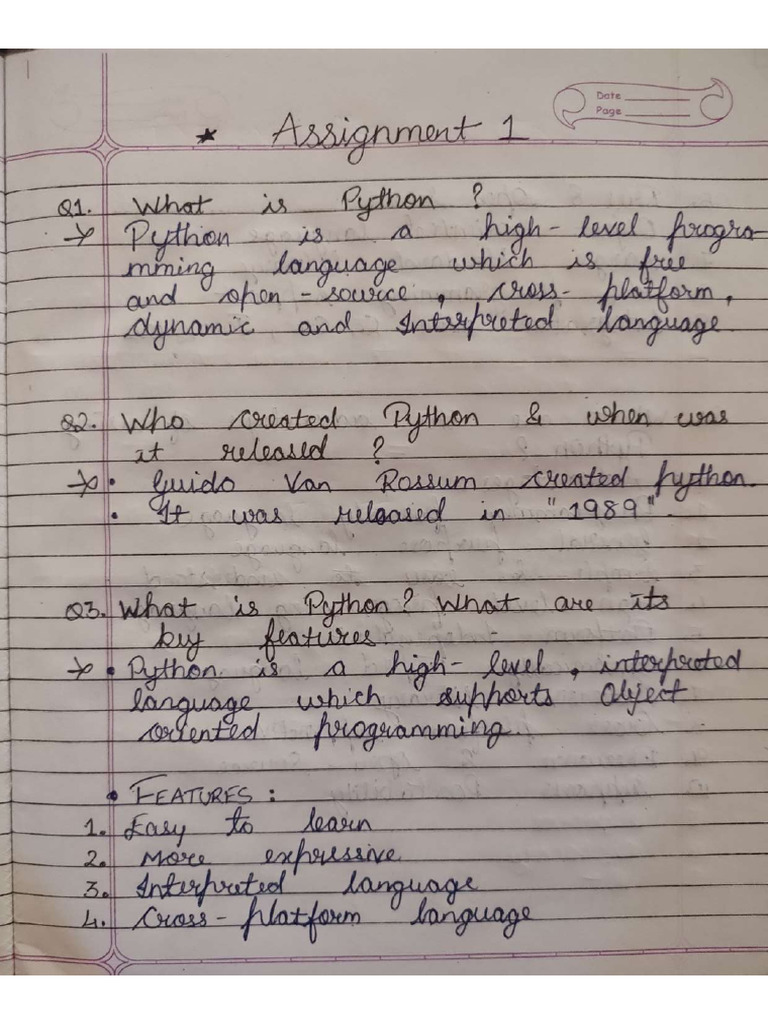 Date
Page
* Assignment 1
Q1. What is Python ?
→ Python is a high-level progra-
mming language which is free
and open-source, cross-platform,
dynamic and Interpreted language
Q2. Who created Python & when was
it released ?
→ • Guido Van Rossum created python.
• It was released in "1989".
Q3. What is Python? What are its
key features.
→ • Python is a high-level, interpreted
language which supports Object
oriented programming.
• FEATURES :
1. Easy to learn
2. More expressive
3. Interpreted language
4. Cross-platform language